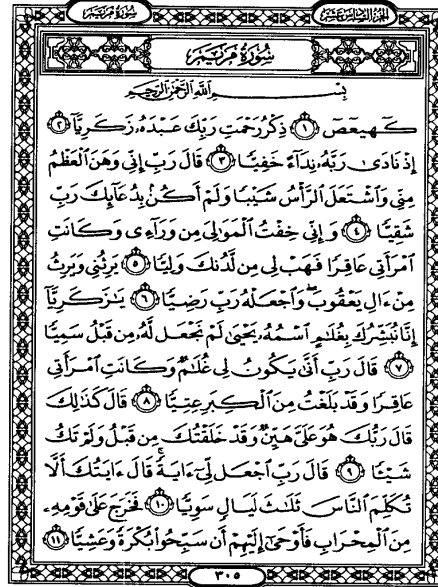 سُورَةُ مَرْيَمَ
الجُزْءُ السَّادِسَ عَشَرَ
سُورَةُ مَرْيَمَ
بِسْمِ اللَّهِ الرَّحْمَٰنِ الرَّحِيمِ
كٓهيعٓصٓ ١ ذِكْرُ رَحْمَتِ رَبِّكَ عَبْدَهُۥ زَكَرِيَّآ ٢
إِذْ نَادَىٰ رَبَّهُۥ نِدَآءً خَفِيًّا ٣ قَالَ رَبِّ إِنِّى وَهَنَ ٱلْعَظْمُ
مِنِّى وَٱشْتَعَلَ ٱلرَّأْسُ شَيْبًا وَلَمْ أَكُنۢ بِدُعَآئِكَ رَبِّ
شَقِيًّا ٤ وَإِنِّى خِفْتُ ٱلْمَوَٰلِىَ مِن وَرَآءِى وَكَانَتِ
ٱمْرَأَتِى عَاقِرًا فَهَبْ لِى مِن لَّدُنكَ وَلِيًّا ٥ يَرِثُنِى وَيَرِثُ
مِنْ ءَالِ يَعْقُوبَ ۖ وَٱجْعَلْهُ رَبِّ رَضِيًّا ٦ يَٰزَكَرِيَّآ
إِنَّا نُبَشِّرُكَ بِغُلَٰمٍ ٱسْمُهُۥ يَحْيَىٰ لَمْ نَجْعَل لَّهُۥ مِن قَبْلُ سَمِيًّا
٧ قَالَ رَبِّ أَنَّىٰ يَكُونُ لِى غُلَٰمٌ وَكَانَتِ ٱمْرَأَتِى
عَاقِرًا وَقَدْ بَلَغْتُ مِنَ ٱلْكِبَرِ عِتِيًّا ٨ قَالَ كَذَٰلِكَ
قَالَ رَبُّكَ هُوَ عَلَىَّ هَيِّنٌ وَقَدْ خَلَقْتُكَ مِن قَبْلُ وَلَمْ تَكُ
شَيْـًٔا ٩ قَالَ رَبِّ ٱجْعَل لِّىٓ ءَايَةً ۚ قَالَ ءَايَتُكَ أَلَّا
تُكَلِّمَ ٱلنَّاسَ ثَلَٰثَ لَيَالٍ سَوِيًّا ١٠ فَخَرَجَ عَلَىٰ قَوْمِهِۦ
مِنَ ٱلْمِحْرَابِ فَأَوْحَىٰٓ إِلَيْهِمْ أَن سَبِّحُوا۟ بُكْرَةً وَعَشِيًّا ١١
٣٠٥